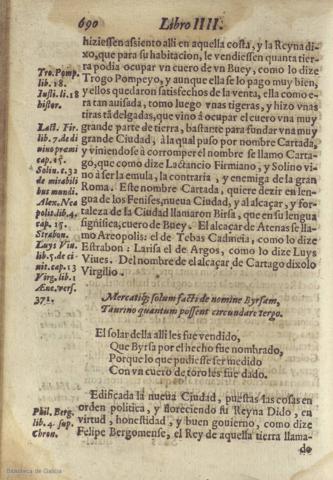 690 Libro IIII.
hiziessen assiento alli en aquella costa, y la Reyna di-
xo, que para su habitacion, le vendiessen quanta tier-
ra podia ocupar vn cuero de vn Buey, como lo dize
Trogo Pompeyo, y aunque ella se lo pago muy bien,
y ellos quedaron satisfechos de la venta, ella como e-
ra tan auisada, tomo luego vnas tigeras, y hizo vnas
tiras tã delgadas, que vino à ocupar el cuero vna muy
grande parte de tierra, bastante para fundar vna muy
grande Ciudad, à la qual puso por nombre Cartada,
y viniendose à corromper el nombre se llamo Carta-
go, que como dize Lactancio Firmiano, y Solino vi-
no à ser la emula, la contraria, y enemiga de la gran
Roma. Este nombre Cartada, quiere dezir en len-
gua de los Fenises, nueua Ciudad, y al alcaçar, y for-
taleza de la Ciudad llamaron Birsa, que en su lengua
significa, cuero de Buey. El alcaçar de Atenas se lla-
mo Areopolis: el de Tebas Cadineia, como lo dize
Estrabon: Larisa el de Argos, como lo dize Luys
Viues. Del nombre de el alcaçar de Cartago dixolo
Virgilio.
Tro. Pomp.
lib. 18.
Iusti. li. 18
histor.
Lact. Fir.
lib. 7. de di
uino premi
cap. 15.
Solin. c. 32
de mirabili
bus mundi.
Alex. Nea
polit. lib. 4.
cap. 15.
Strabon.
Luys Viu.
lib. 5. de ci-
uit. cap. 13
Virg. lib. 1
Æne. vers.
371.
Mercatiq; solum facti de nomine Byrsam,
Taurino quantum possent circundare tergo.
El solar della alli les fue vendido,
Que Byrsa por el hecho fue nombrado,
Porque lo que pudiesse ser medido
Con vn cuero de toro les fue dado.
Edificada la nueua Ciudad, puestas las cosas en
orden politica, y floreciendo su Reyna Dido, en
virtud, honestidad, y buen gouierno, como dize
Felipe Bergomense, el Rey de aquella tierra llama-
do
Phil. Berg.
lib. 4 sup.
Chron.
Biblioteca de Galicia